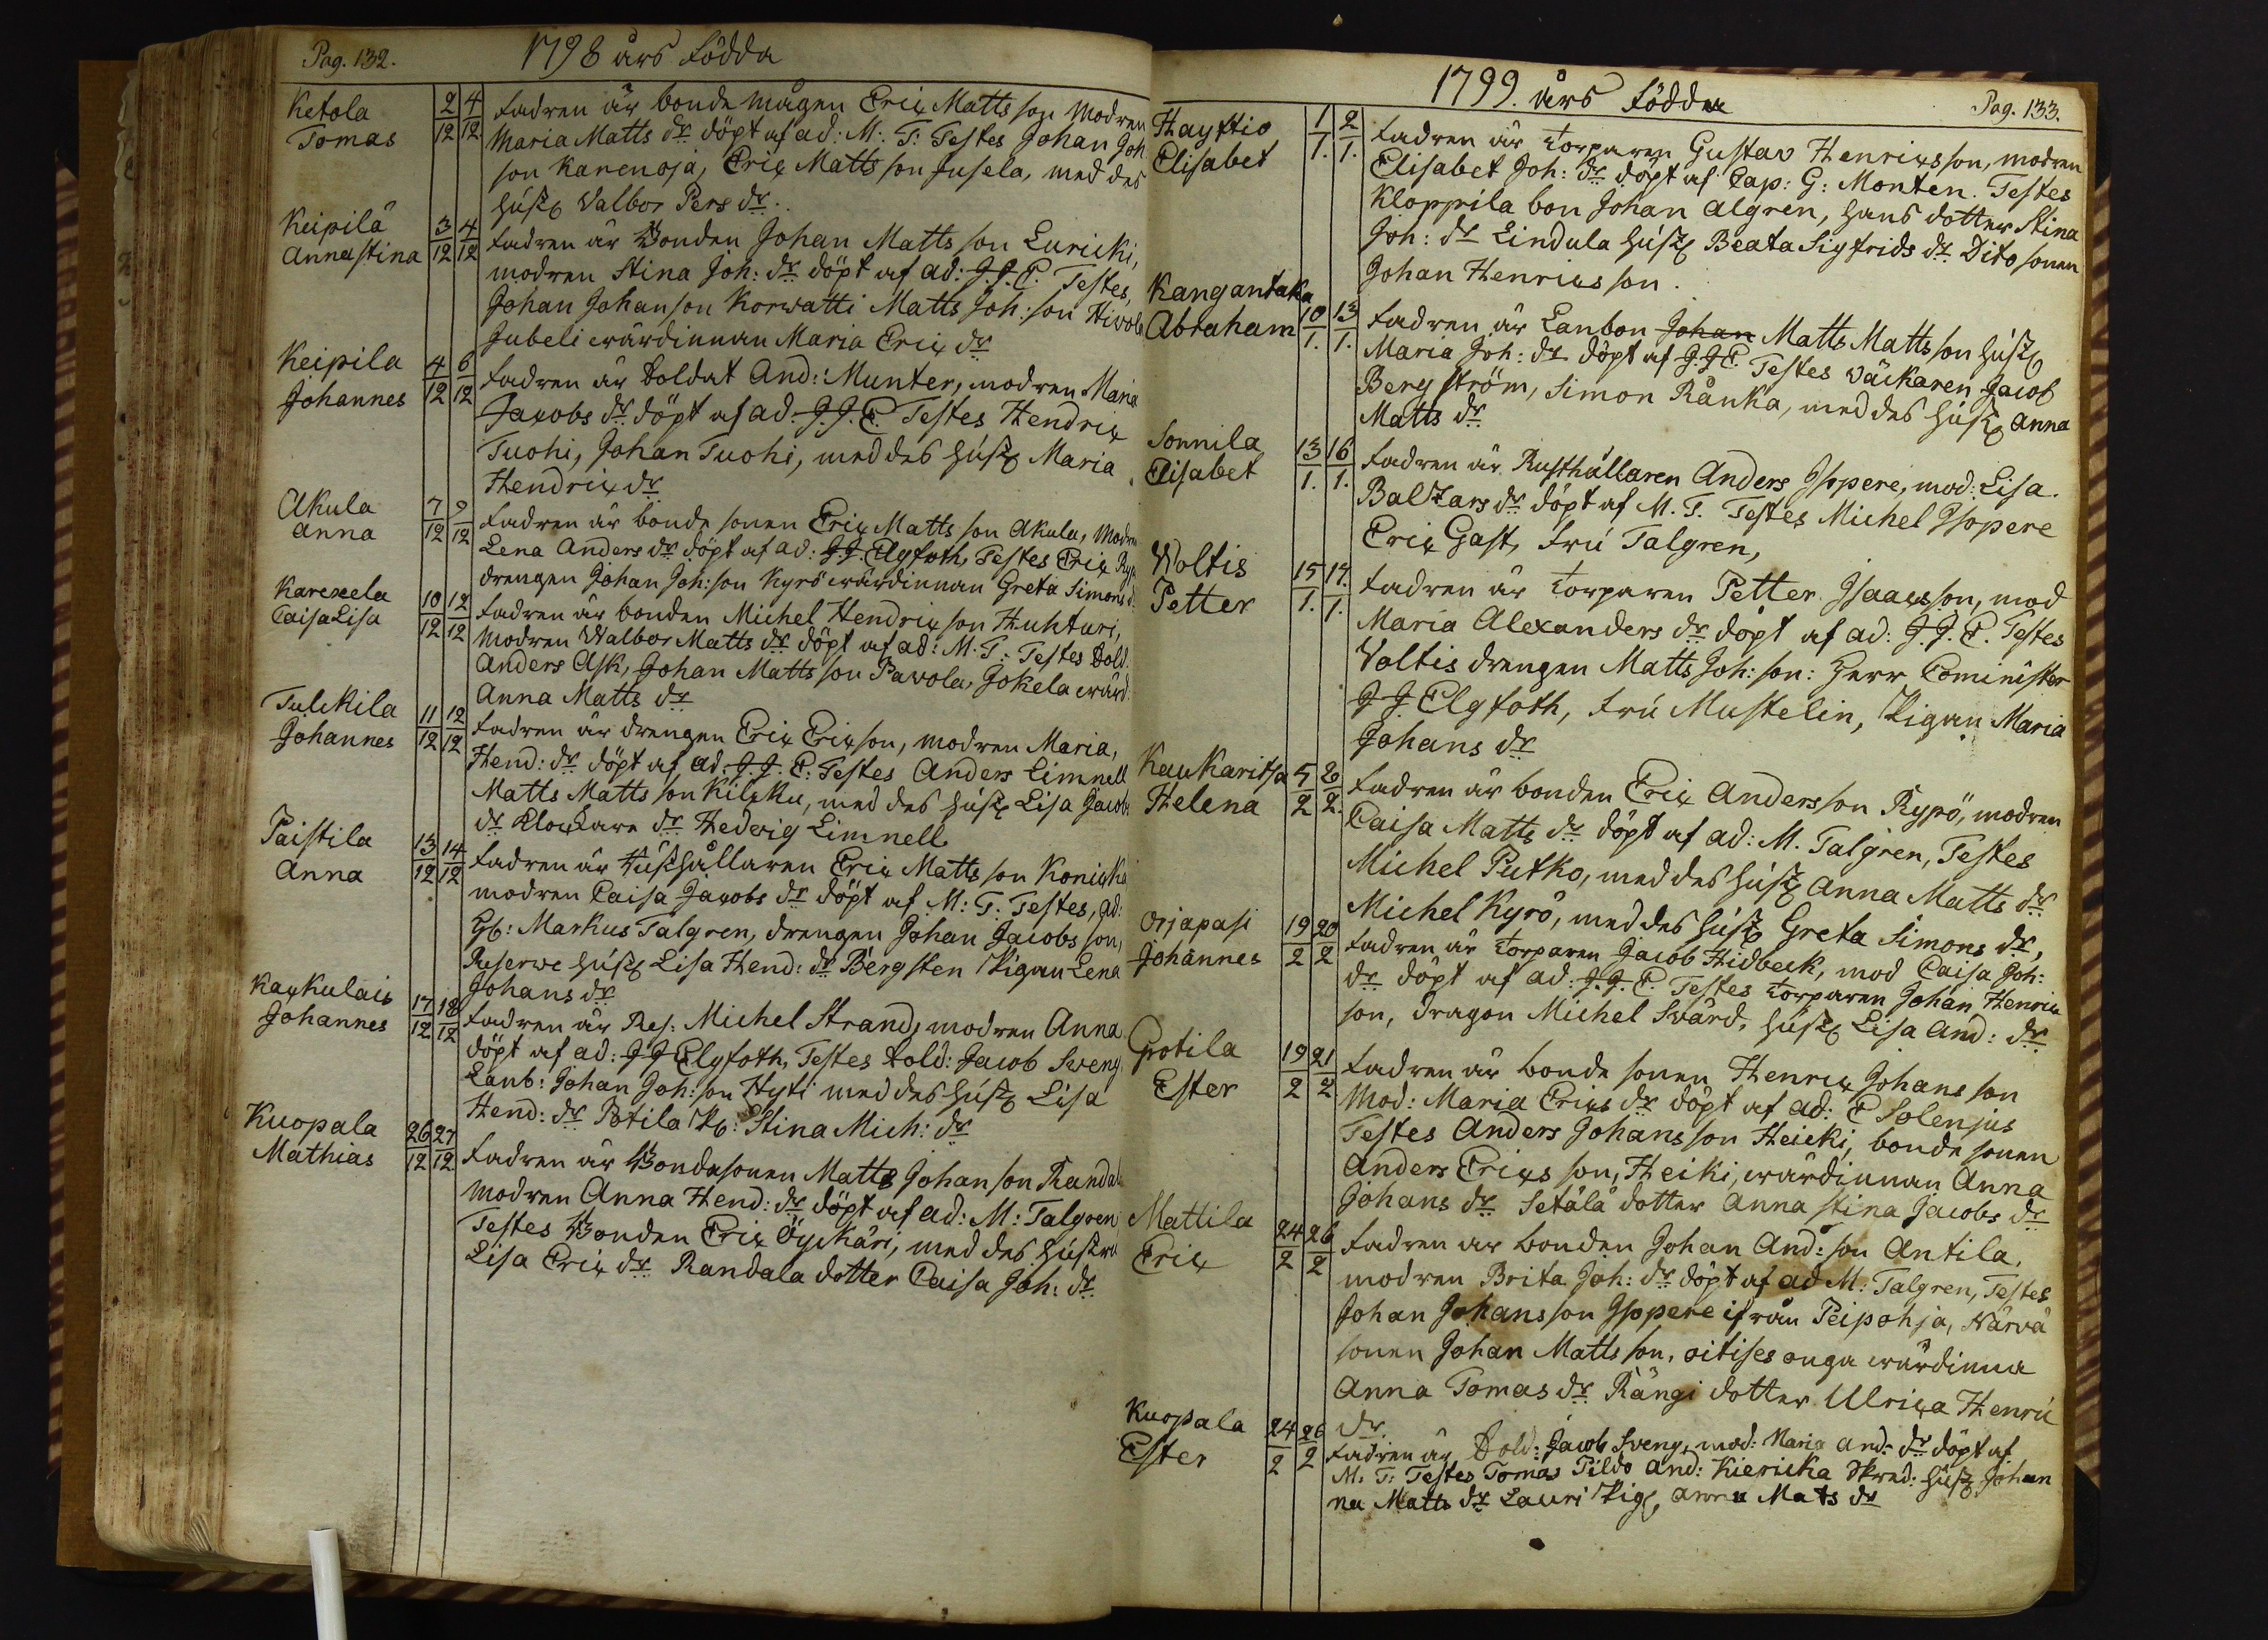 Pag. 132. 1798 års Födda
Ketola 2/12 4/12 Fadren är bonde mågen Erix Matts son Modren
Tomas Maria Matts dr döpt af ad: M: T: Testes Johan Joh
son Karenoja, Erix Matts son Jusela, med des
hust Valbor Pers dr.
Keipilä 3/12 4/12 Fadren är Bonden Johan Matts son Luricki,
Annastina modren Stina Joh: dr döpt af ad: J.J.E. Testes,
Johan Johanson Korwatti Matts Joh: son Hivola
Jubeli wärdinnan Maria Erix dr
Keipila 4/12 6/12 Fadren är Soldat And: Munter, modren Maria
Johannes Jacobs dr döpt af ad. J.J.E. Testes Hendrix
Tuohi, Johan Tuohi, med des hust Maria
Hendrix dr
Akula 7/12 9/12 Fadren är bonde sonen Erix Matts son Akula, Modren
Anna Lena Anders dr döpt af ad: J.J. Elgfoth, Testes Erix
drengen Johan Joh: son Kyrö wärdinnan Greta Simons d.
Karcxela 10/12 12/12 Fadren är bonden Michel Hendrix son Huhturi,
CaisaLisa Modren Walbor Matts dr döpt af ad: M. T. Testes Sold.
Anders Ask, Johan Matts son Pavola, Jokela wärd:
Anna Matts dr
Tulckila 11/12 12/12 Fadren är drengen Erix Erixson, modren Maria,
Johannes Hend: dr döpt af ad. J. J. E: Testes Anders Limnell
Matts Matts son Kilxku, med des hust Lisa Jacobs
dr Klockare dr Hedvig Limnell
Paistila 13/12 14/12 Fadren är Husthållaren Erix Matts son Konicka
Anna modren Caisa Jacobs dr döpt af M: T. Testes, ad:
Gb: Markus Talgren, drengen Johan Jacobs son,
Reserwe hust Lisa Hend: dr Bergsten Pigan Lena
Johans dr
Kaxkulais 17/12 18/12 Fadren är Res: Michel Strand, modren Anna
Johannes döpt af ad: J J Elgfoth, Testes Sold: Jacob Sveng
Lanb: Johan Joh: son Hyti med des hust Lisa
Hend: dr Potila P: Stina Mich: dr
Kuopala 26/12 27/12 Fadren är Bondasonen Matts Johan son Randala
Mathias modren Anna Hend: dr döpt af ad: M: Talgren
Testes Bonden Erix Öyckäri, med des hustru
Lisa Erix dr Randala dotter Caisa Joh: dr
1799. års Födda Pag. 133.
Hayttio 1/1. 2/1. Fadren är torparen Gustav Henrixsson, modren
Elisabet Elisabet Joh: dr döpt af Cap: G: Monten. Testes
Kloppila bon Johan Algren, hans dotter Stina
Joh: dr Lindula hust Beata Sigfrids dr Dito sonen
Johan Henrics son.
Kangantaka 10/1. 13/1. Fadren är Lanbon Johan Matts Matts son hust
Abraham Maria Joh: dr döpt af J.J.E. Testes väckaren Jacob
Bergström, Simon Rånka, med des hust Anna
Matts dr
Sonnila 13/1. 16/1. Fadren är Rusthållaren Anders Ispere, mod: Lisa
Elisabet Baltzars dr döpt af M. T. Testes Michel Isopere
Erix Gast, Fru Talgren,
Woltis 15/1. 17./1. Fadren är torparen Petter Isacsson, mod
Petter Maria Alexanders dr döpt af ad: J.J. E. Testes
Voltis drengen Matts Joh: son: Herr Cominister
J J Elgfoth, Fru Mustelin, Pigan Maria
Johans dr
Kaukaritsa 5/2 6/2. Fadren är bonden Erix Andersson Rypö, modren
Helena Caisa Matts dr döpt af ad: M. Talgren, Testes
Michel Putko, med des hust Anna Matts dr
Michel Kyrö, med des hust Greta Simons dr,
Orjapasi 19/2 20/2 Fadren är torparen Jacob Hidbeck, mod Caisa Joh:
Johannes dr döpt af ad: J.J. E. Testes torparen Johan Henrix
son, dragon Michel Svärd, hust Lisa And: dr
Potila 19/2 21/2 Fadren är bonde sonen Henrix Johans son
Ester Mod: Maria Erixs dr döpt af ad: E Solenjus
Testes Anders Johans son Heicki, bonde sonen
Anders Erixs son, Heiki, wärdinnan Anna
Johans dr Setälä dotter Anna Stina Jacobs dr
Mattila 24/2 26/2 Fadren är bonden Johan And: son Antila,
Erix modren Brita Joh: dr döpt af ad M: Talgren, Testes
Johan Johansson Isopere ifrån Peipohja, Närvä
sonen Johan Matts son, oitises unga wärdinna
Anna Tomas dr Rängi dotter Ulrica Henric
dr
Kuopala 24/2 26/2 Fadren är Sold: Jacob Sveng, mod: Maria And: dr döpt af
Ester M. T: Testes Tomas Pildo And: Kiericka Skred: hust Johan
na Matts dr Lauri Pig, Anna Mats dr